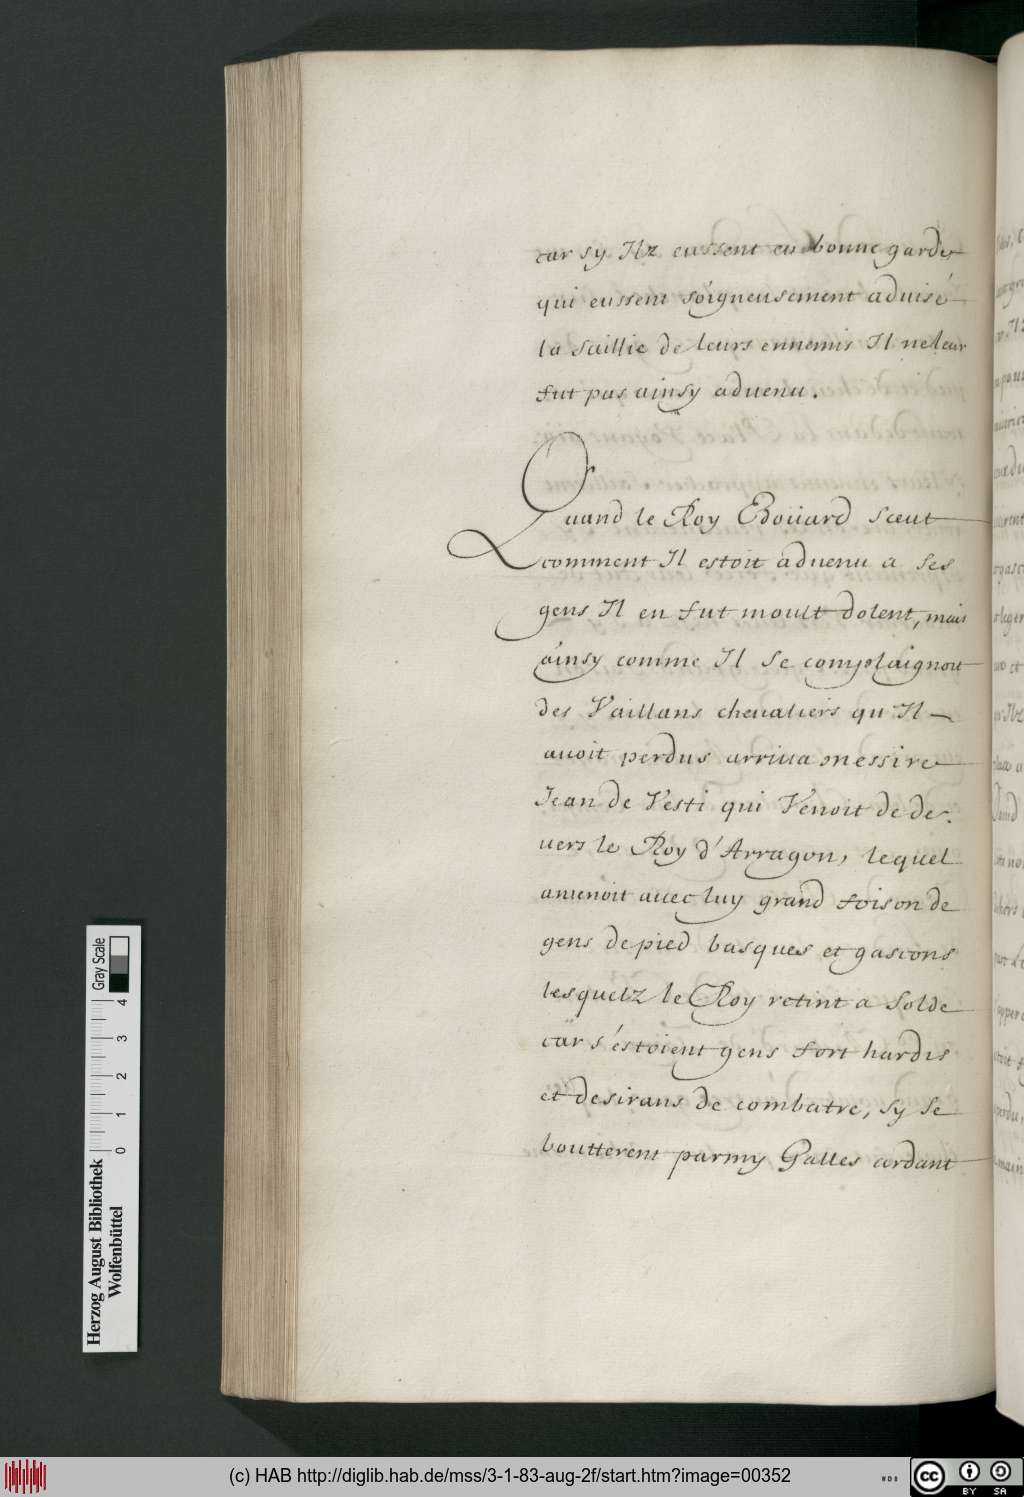 car sy Ilz eussent eu bonne garde
qui eussent soigneusement aduisé
la saillie de leurs ennemis Il ne leur
fut pas ainsy aduenu.
Quand le Roy Edoüard sceut
comment Il estoit aduenu a ses
gens Il en fut moult dolent, mais
ainsy comme Il se complaignoit
des Vaillans cheualiers qu'Il
auoit perdus arriua messire
Jean de Vesti qui Venoit de de-
uers le Roy d'Arragon, lequel
amenoit auec luy grand foison de
gens de pied basques et gascons
lesquelz le Roy retint a solde
car s'éstoient gens fort hardis
et desirans de combatre, sy se
boutterent parmy Galles ardant
Gray Scale
4
3
2
1
0
Herzog August Bibliothek
Wolfenbüttel
(c) HAB http://diglib.hab.de/mss/3-1-83-aug-2f/start.htm?image=00352
cc
BY SA